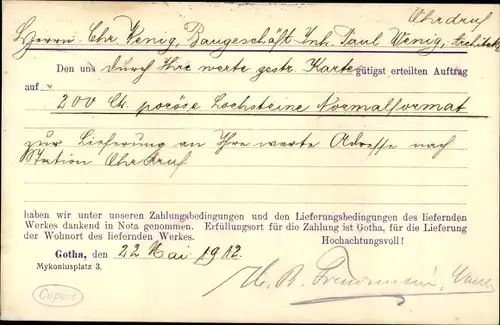 Ohrdruf
Herrn Chr. Wenig, Baugeschäft Inh. Paul Wenig, Architekt
Den uns durch Ihre werte gestr. Karte gütigst erteilten Auftrag
auf
200 Ct. poröse Lochsteine Normalformat
zur Lieferung an Ihre werte Adresse nach
Station Ohrdruf
haben wir unter unseren Zahlungsbedingungen und den Lieferungsbedingungen des liefernden
Werkes dankend in Nota genommen. Erfüllungsort für die Zahlung ist Gotha, für die Lieferung
der Wohnort des liefernden Werkes. Hochachtungsvoll!
Gotha, den 22 Mai 1912.
Mykoniusplatz 3.
Copiert